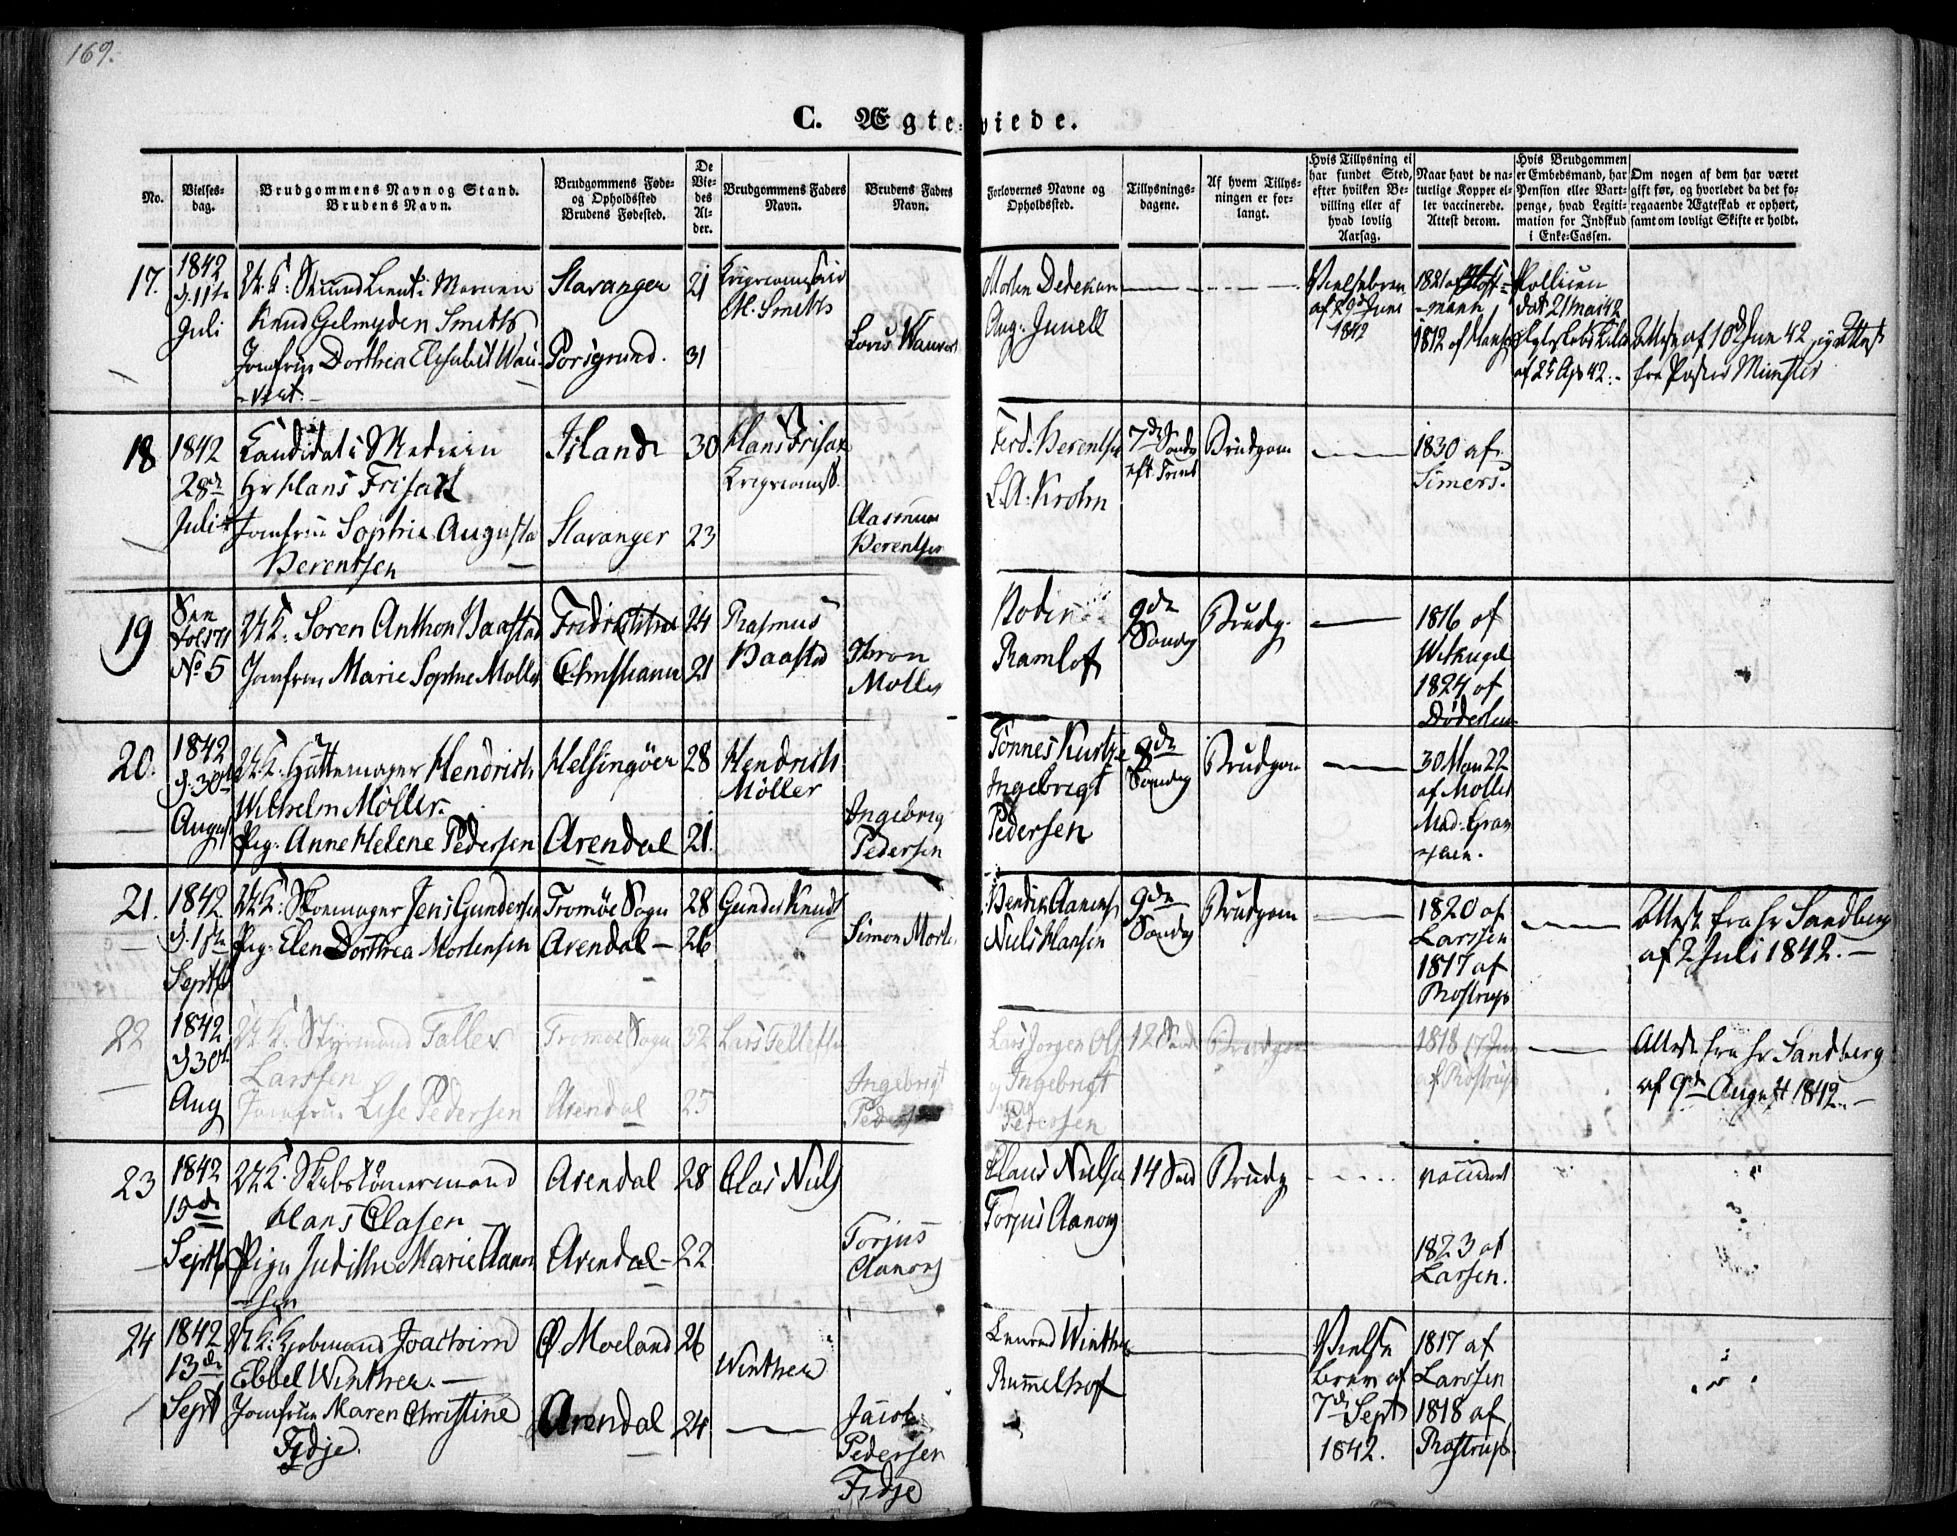 169.
C. Ægteviede.
No.
Vielsesdag.
Brudgommens Navn og Stand.
Brudens Navn.
Brudgommens Føde-
og Opholdssted
Brudens Fødested.
De
Vie-
des
Al-
der.
Brudgommens Faders
Navn.
Brudens Faders
Navn.
Forlovernes Navne og
Opholdssted.
Tillysnings-
dagene.
Af hvem Tillys-
ningen er for-
langt.
Hvis Tillysning ei
har fundet Sted,
efter hvilken Be-
villing eller af
hvad lovlig
Aarsag.
Naar havt de na-
turlige Kopper el-
ler vaccinerede.
Attest derom.
Hvis Brudgommen
er Embedsmand, har
Pension eller Vart-
penge, hvad Legiti-
mation for Indskud
i Enke-Cassen.
Om nogen af dem har været
gift før, og hvorledes da det fo-
regaaende Ægteskab er ophørt,
samt om lovligt Skifte er holdt.
17.
1842
d. 11te
Juli
Knud Gelmyden Smith
Jomfru Dorthea Elisabet Wau-
Stavanger 21
Porsgrund. 31
M. Smith
Louis
Morten Dedekam
Aug: Junell
Vielsebrev
af 29d Juni
1842
1821 af
-mann
1812 af
dat 21 Mai 42
af 25 Ap 42.-
Attest af 10d Jun 42
fra Pastor Münster
18
1842
28de
Juli
Candidat i Medicin
Hr Hans Frisak
Jomfru Sophie Augusta
Berentsen
Island 30
Stavanger 23
Hans Frisak
Aasmun
Berentsen
Ferd. Berentsen
L. A. Krohn
7de Sondg
eft Trinit
Brudgom
1830 af
Simers.
19
Sen
Fol 171
No 5
U. K: Soren Anthon Baastad
Jomfru Marie Sophie Moller
24
Christiania 21
Rasmus
Baastad
Moller
Robert
Ramlof
9de
Sondg
Brudg.
1816 af
1824 af
20.
1842
d. 30
August
U. K. Hattemager Hendrich
Wilhelm Möller.
Pig. Anne Helene Pedersen
Helsingöer 28
Arendal 21.
Hendrich
Möller
Ingebrig
Pedersen
Tønnes
Ingebrigt
Pedersen
8de
Sondg
Brudgom
af Moller
Mad. Gram
21.
1842
d. 1ste
Septb
U. K: Skomager Jens Gundersen
Pig. Elen Dorthea Mortensen
Tromøe Sogn 28
Arendal - 26
Gunder Knuds
Simon Morten
Bendix Aanens
Niels Hansen
9de
Sondg
Brudgom
1820 af
Larssen
1817 af
Rostrup
Attest fra Hr Sandberg
af 2 Juli 1842.-
22
1842
d 30t
Aug
U. K: Styrmand Tallev
Larssen
Jomfrue Lise Pedersen
Tromøe Sogn 32
Arendal 25
Lars Tellefsen
Ingebrigt
Peders
Lars Jorgen Ols
og Ingebrigt
Pedersen
12 Sond
Brudgom
1818 17 Jun
af Rostrup
Attest fra Hr Sandberg
af 9de August 1842.-
23
1842
15de
Septb
U. K: Skibstømermand
Hans Clasen
Pige Judithe Marie Aanon
-sen
Arendal 28
Arendal - 22
Clas Niels
Torjus
Aanons
Claus Nielsen
Torjus Aanons
14 Sond
Brudg
vaccineret
1823 af
Larsen.
24
1842
13de
Sept
U. K: Kjobmand Joachim
Ebbel Winther.-
Jomfrue Maren Christine
Fidje.
Ø Moeland 26
Arendal 24
Winther
Jacob
Pedersen
Fidje
Winther
Rummelhof
Vielse
Brev af
7de Sept
1842.
1817 af
Larssen
1818 af
Rostrup